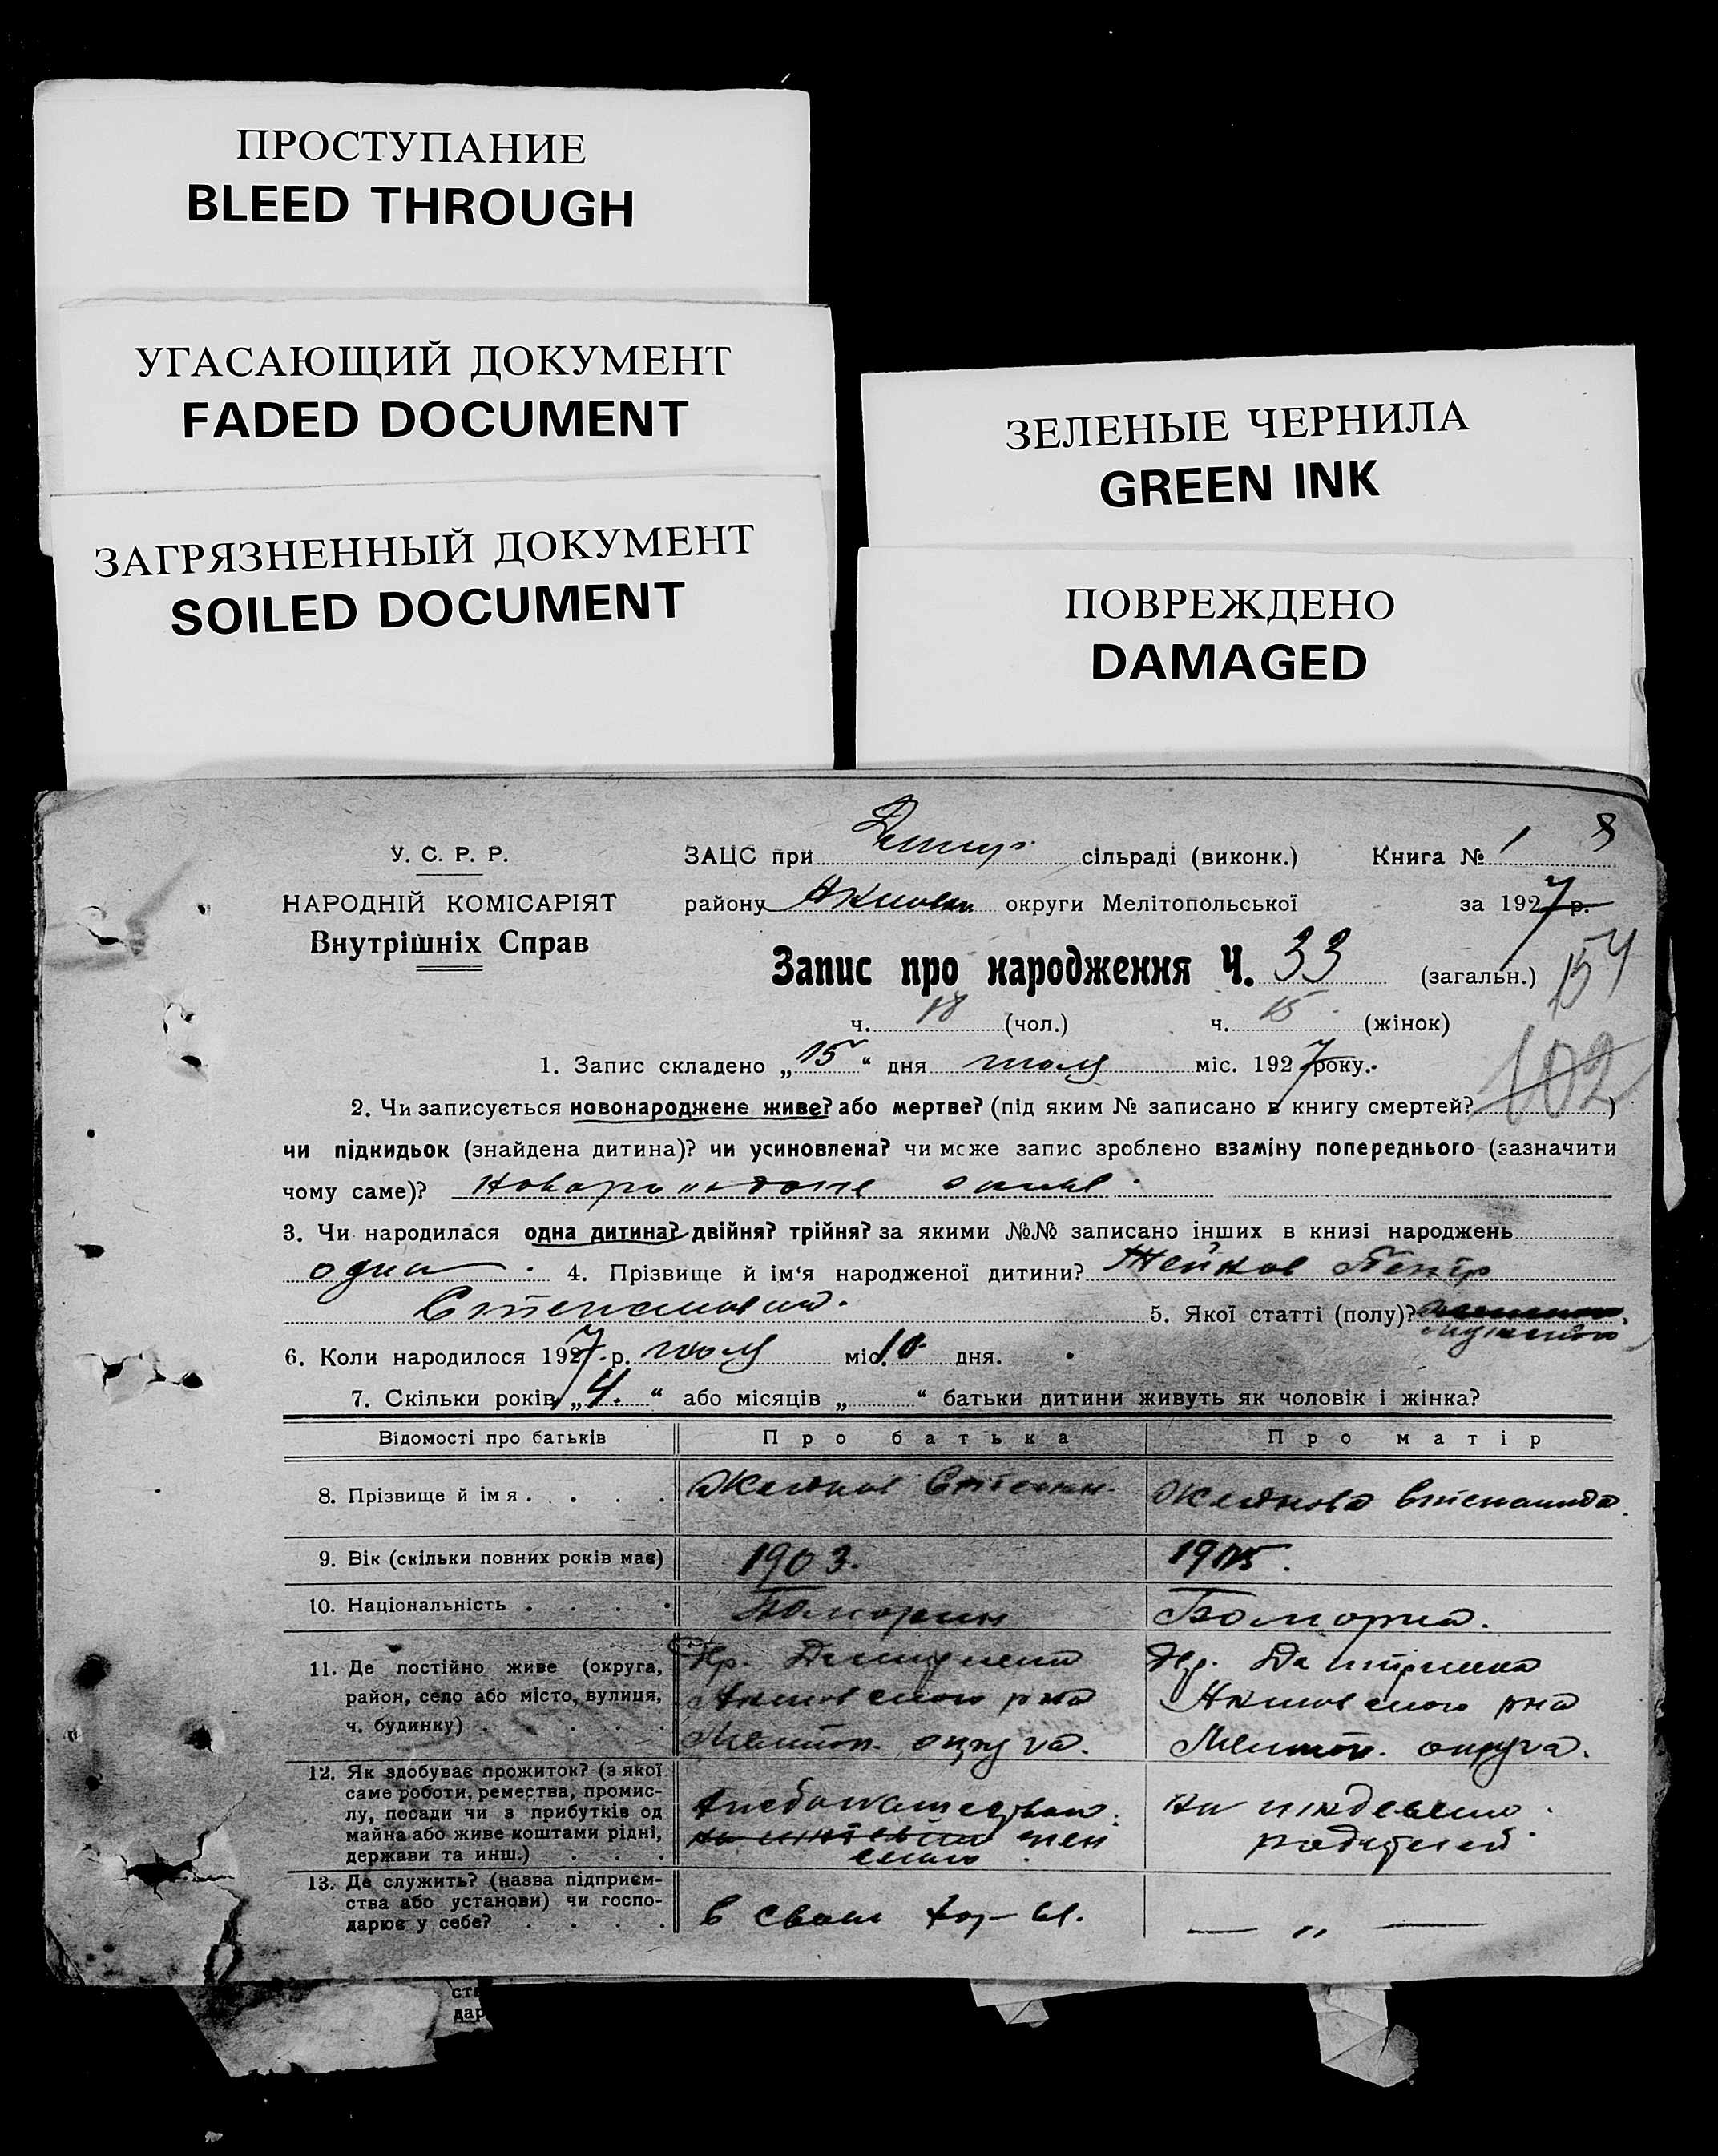 ПРОСТУПАНИЕ
BLEED THROUGH
УГАСАЮЩИЙ ДОКУМЕНТ
FADED DOCUMENT
ЗАГРЯЗНЕННЫЙ ДОКУМЕНТ
SOILED DOCUMENT
ЗЕЛЕНЫЕ ЧЕРНИЛА
GREEN INK
ПОВРЕЖДЕНО
DAMAGED
8
У. С. Р. Р.
НАРОДНІЙ КОМІСАРІЯТ
Внутрішніх Справ
ЗАЦС при сільраді (виконк.) Книга № 1
району округи Мелітопольської за 1927 р.
Запис про народження Ч. 33 (загальн.) 154
ч. 18 (чол.) ч. 15 (жінок)
102
1. Запис складено „15“ дня июля міс. 1927 року.
2. Чи записується новонароджене живе? або мертве? (під яким № записано в книгу смертей? )
чи підкидьок (знайдена дитина)? чи усиновлена? чи може запис зроблено взаміну попереднього (зазначити
чому саме)?
3. Чи народилася одна дитина? двійня? трійня? за якими №№ записано інших в книзі народжень
одна. 4. Прізвище й ім'я народженої дитини? Жейнов Петр
5. Якої статті (полу)?
6. Коли народилося 1927 р. июля міс. 10 дня.
7. Скільки років „4.“ або місяців „ “ батьки дитини живуть як чоловік і жінка?
Відомості про батьків Про батька Про матір
8. Прізвище й імя Жейнов Степан Жейнова
9. Вік (скільки повних років має) 1903. 1905.
10. Національність
11. Де постійно живе (округа,
район, село або місто, вулиця,
ч. будинку)
Акимовского рна
Мелитоп. округа.
Акимовского рна
Мелитоп. округа.
12. Як здобуває прожиток? (з якої
саме роботи, ремества, промис-
лу, посади чи з прибутків од
майна або живе коштами рідні,
держави та инш.)
на иждевении
родителей
13. Де служить? (назва підприєм-
ства або установи) чи госпо-
дарює у себе?
в своем хоз-ве.
— „ —
ств
дар